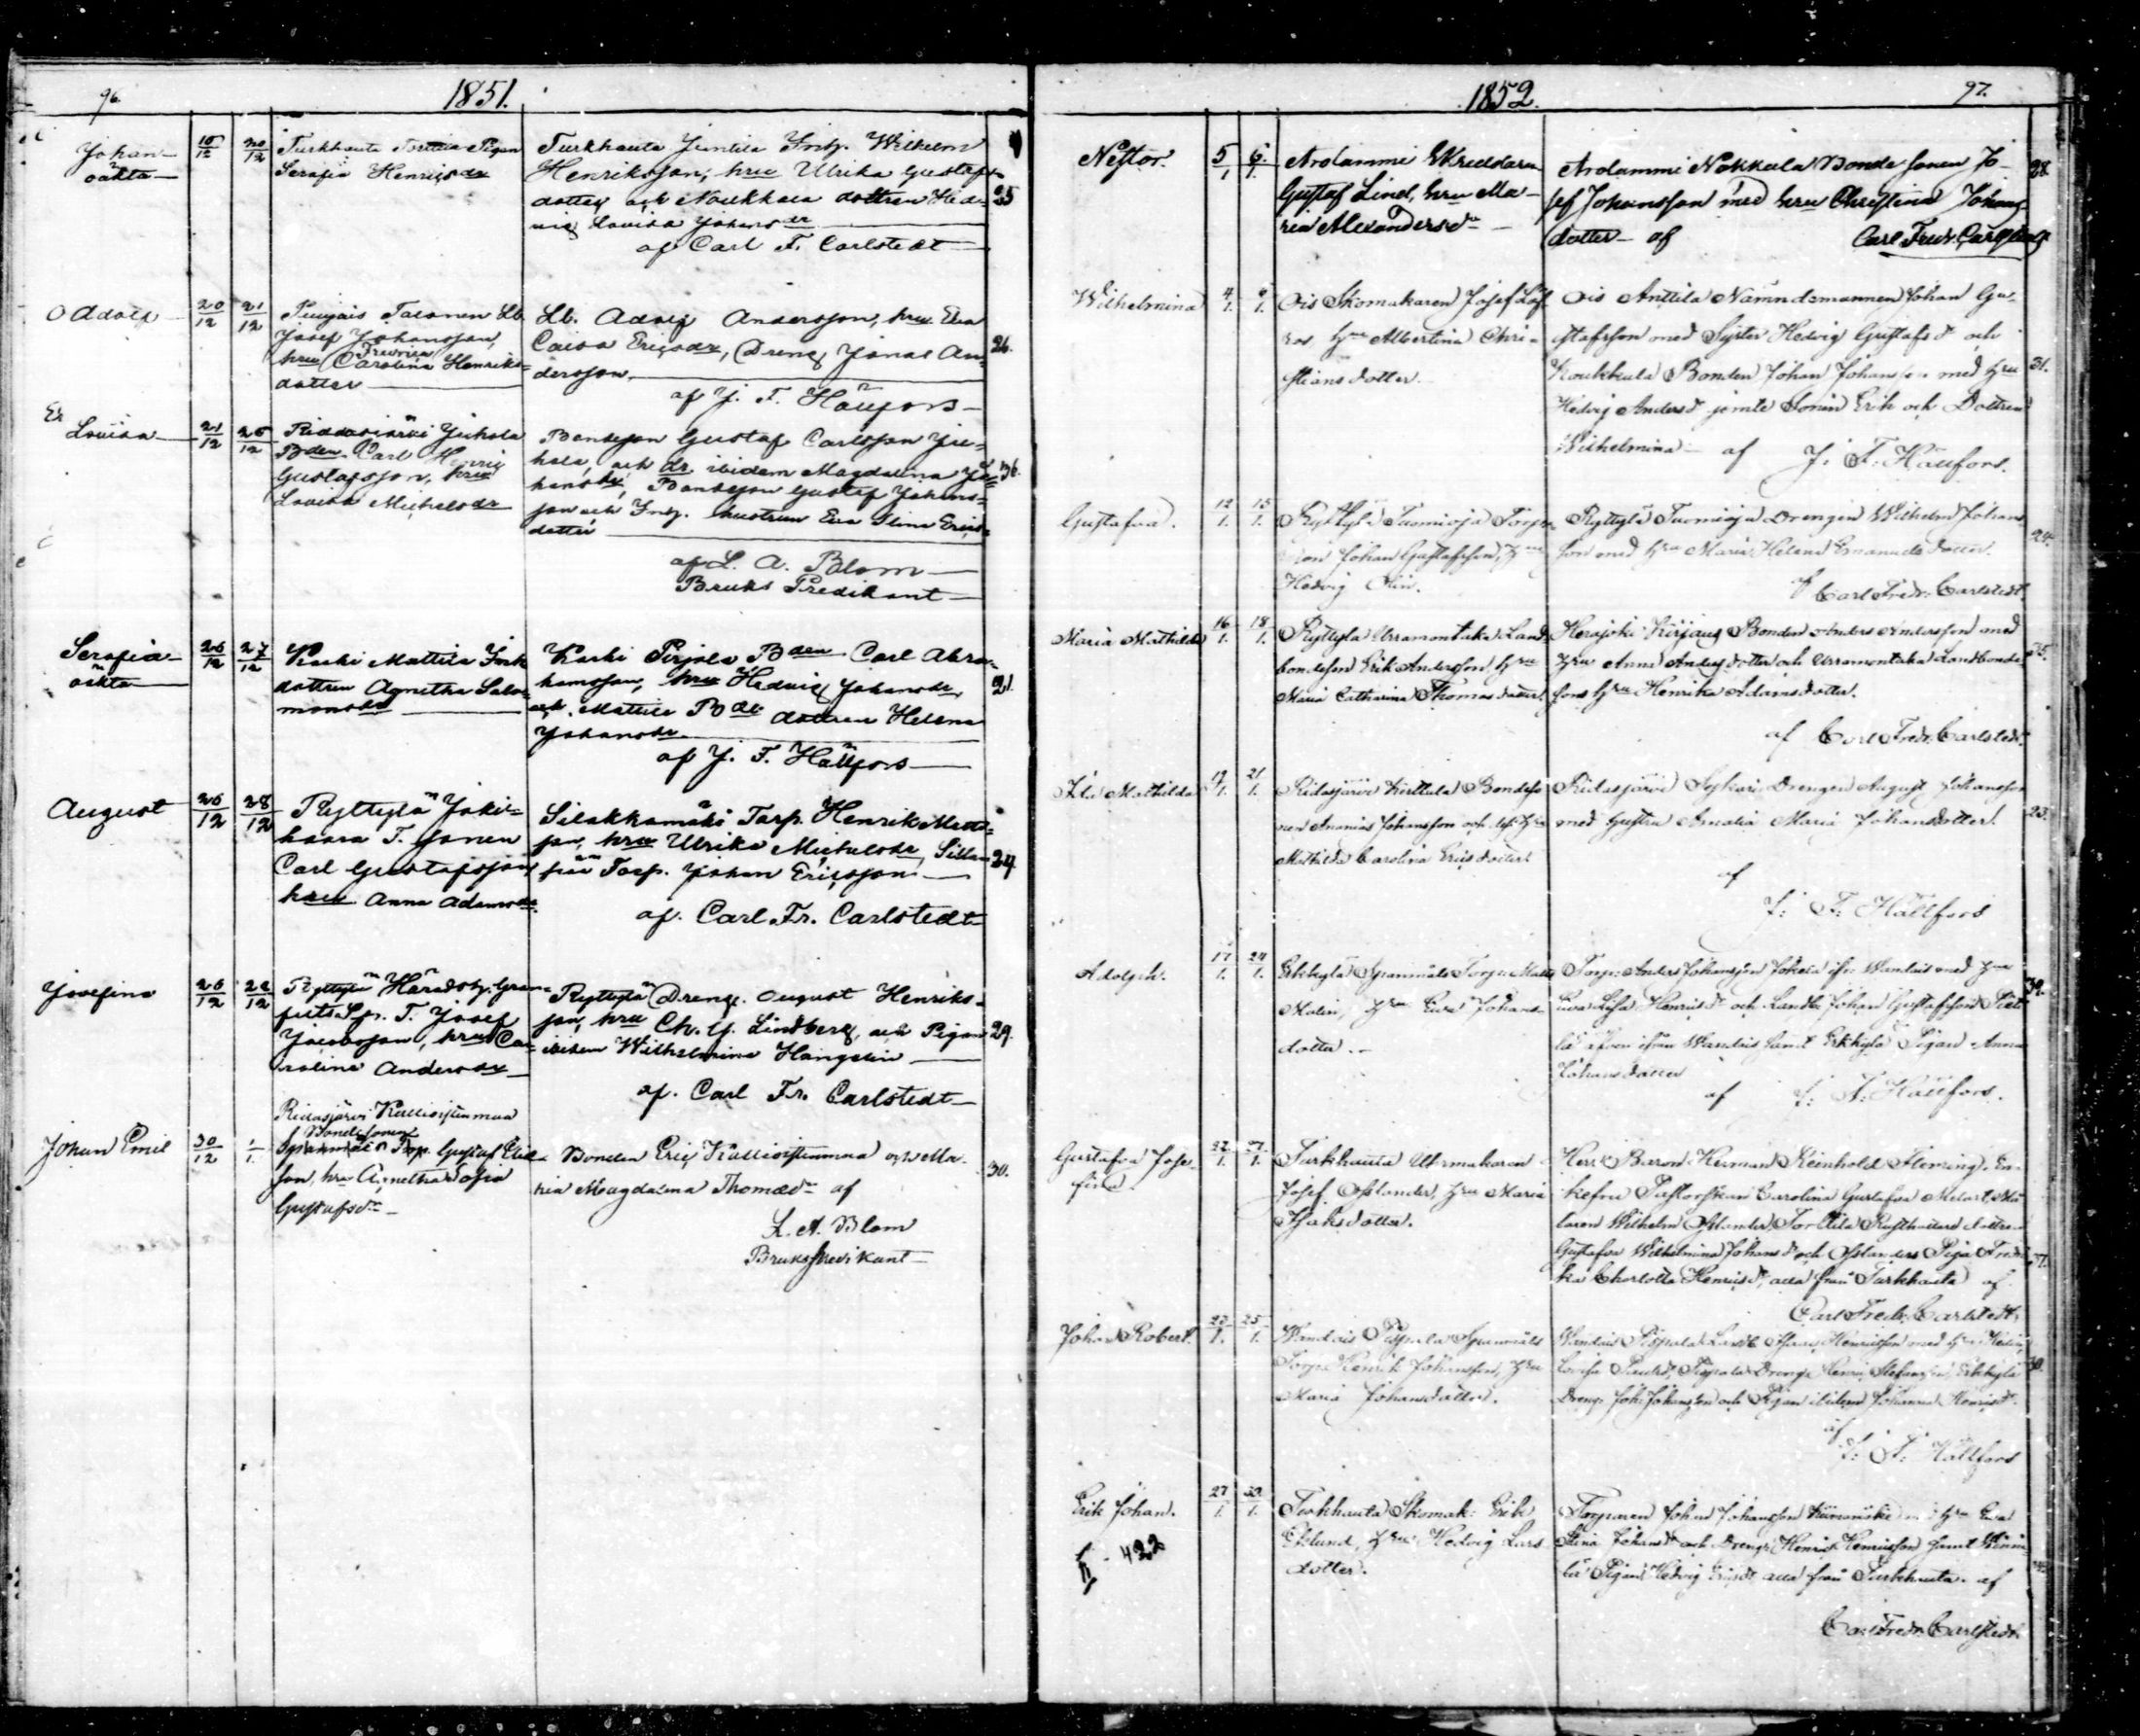 96.
1851.
Johan
oäkta
15/12
20/12
Turkhauta Pigan
Serafia Henricsdr
Turkhauta Juntila Inh. Wilhelm
Henriksson, hru Ulrika Gustafs
dotter och Noukkala dottren Hed
vig Lovisa Johansdr
af Carl F. Carlstedt
25
Adolf
20/12
21/12
Josef Johansson,
hru Fredrica
Carolina Henriks
dotter
Lb. Adolf Andersson, hru Eva
Caisa Ericsdr, Dreng Jonas An
dersson
af J. F. Hällfors
26.
Lovisa
21/12
25/12
Riddasjärvi Juhola
Bden Carl Henric
Gustafsson, hru
Lovisa Michelsdr
Bondeson Gustaf Carlsson Ju
hola, och dr. ibidem Magdalena Jo
hansdr, Bondeson Gustaf Johans
son och Inh. hustrun Eva Stina Erics
dotter
af L. A. Blom
Bruks Predikant
36.
Serafia
oäkta
26/12
27/12
Karki Mattila Inh
dottren Agnetha Salo
monsdr
Karki Pirjola Bden Carl Abra
hamsson, hru Hedvig Johansdr,
och Mattila Bde dottren Helena
Johansdr
af J. F. Hällfors
21.
August
26/12
28/12
Ryttylä Joki
haara T. Sonen
Carl Gustafsson
hru Anna Adamsdr
Silakkamäki Torp. Henrik Matts
son, hru Ulrika Michelsdr,
från Torp. Johan Ericsson
af. Carl Fr. Carlstedt
24
Josefina
26/12
28/12
Ryttylä
T. Josef
Jacobsson, hru Ca
rolina Andersdr
Ryttylä Dreng. August Henriks
son, hru Ch. G. Lindberg, och Pigan
ibidem Wilhelmina Hangelin
af. Carl Fr. Carlstedt
29.
Johan Emil
30/12
1/1.
Ridasjärvi Kallioistenmaa
Bondesonen
Gustaf Eliæ
son, hru Agnetha Sofia
Gustafsdr
Bonden Eric Kallioistenmaa och Ma
ria Magdalena Thomædr af
L. A. Blom
Brukspredikant
30.
1852.
97.
Nestor.
5/1
6./1.
Arolammi Skreddaren
Gustaf Lind, hru Ma
ria Alexandersdr
Arolammi Nokkala Bonde sonen Jo
sef Johansson med hru Christina Johans
dotter af Carl Fredr. Carlstedt
28.
Wilhelmina
4/1.
Ois Skomakaren Josef Löf
ros hru Albertina Chri
stians dotter.
Ois Anttila Nämndemannen Johan Gu
stafsson med Syster Hedvig Gustafsd och
Koukkula Bonden Johan Johansson med hru
Hedvig Andersd jemte Sonen Erik och Dottren
Wilhelmina af J. F. Hällfors.
31.
Gustafva.
12/1.
15/1.
Ryttylä Tuomioja Torpa
ren Johan Gustafsson, hru
Hedvig
Ryttylä Tuomioja Drengen Wilhelm Johans
son med hru Maria Helena Emanuels dotter.
af Carl Fredr. Carlstedt
24.
Maria Mathilda
16/1.
18/1.
Ryttylä Urramontaka Land
bondeson Erik Andersson, hru
Maria Catharina Thomas dotter.
Herajoki Kirjaus Bonden Anders Andersson med
hru Anna Anders dotter och Urramontaka Landbonde
sons hru Henrika Adams dotter.
af Carl Fredr. Carlstedt
25.
Ida Mathilda
17/1.
21/1.
Ridasjärvi Kerttula Bondeso
nen Ananias Johansson och dess hru
Mathilda Carolina Erics dotter.
Ridasjärvi Sykäri Drengen August Johansson
med Hustru Amalia Maria Johansdotter.
af
J. F. Hällfors
23.
Adolph.
17/1.
24/1.
Erkkylä Spannmåls Torp. Matts
Malin, hru Eva Johans
dotter.
Torp. Anders Johansson Jokela ifrån Wantais med hru
Eva Lisa Henricsdr och Landb. Johan Gustafsson
äfven ifrån Wantais samt Erkkylä Pigan Anna
Johans dotter
af J. F. Hällfors.
39.
Gustafva Jose
fina.
22/1.
27/1.
Turkhauta Uhrmakaren
Josef Osslander, hru Maria
Isaks dotter.
Herr Baron Herman Reinhold Fleming, En
kefru Pastorskan Carolina Gustafva Melart, Må
laren Wilhelm Osslander, Torttila Rusthållare dottren
Gustafva Wilhelmina Johansdr och Osslanders Piga Fredri
ka Charlotta Henricsdr, alla från Turkhauta af
Carl Fredr. Carlstedt.
27.
Johan Robert.
23/1.
25/1.
Wantais Pispala Spannmåls
Torp. Henrik Johansson, hru
Maria Johansdotter.
Wantais Pispala Landb. Isaac Henricsson med hru Hedvig
Lovisa Paulsd, Pispala Dreng. Henric Stefansson, Erkkylä
Dreng. Joh. Johansson och Pigan ibidem Johanna Henricsdr.
af
J. F. Hällfors
30.
Erik Johan.
II - 422
27/1.
30/1.
Turkhauta Skomak. Erik
Eklund, hru Hedvig Lars
dotter.
Torparen Johan Johansson hru Eva
Stina Johansdr och Dreng. Henric Henricsson samt
Pigan Hedvig Ericsdr, alla från Turkhauta. af
Carl Fredr. Carlstedt.